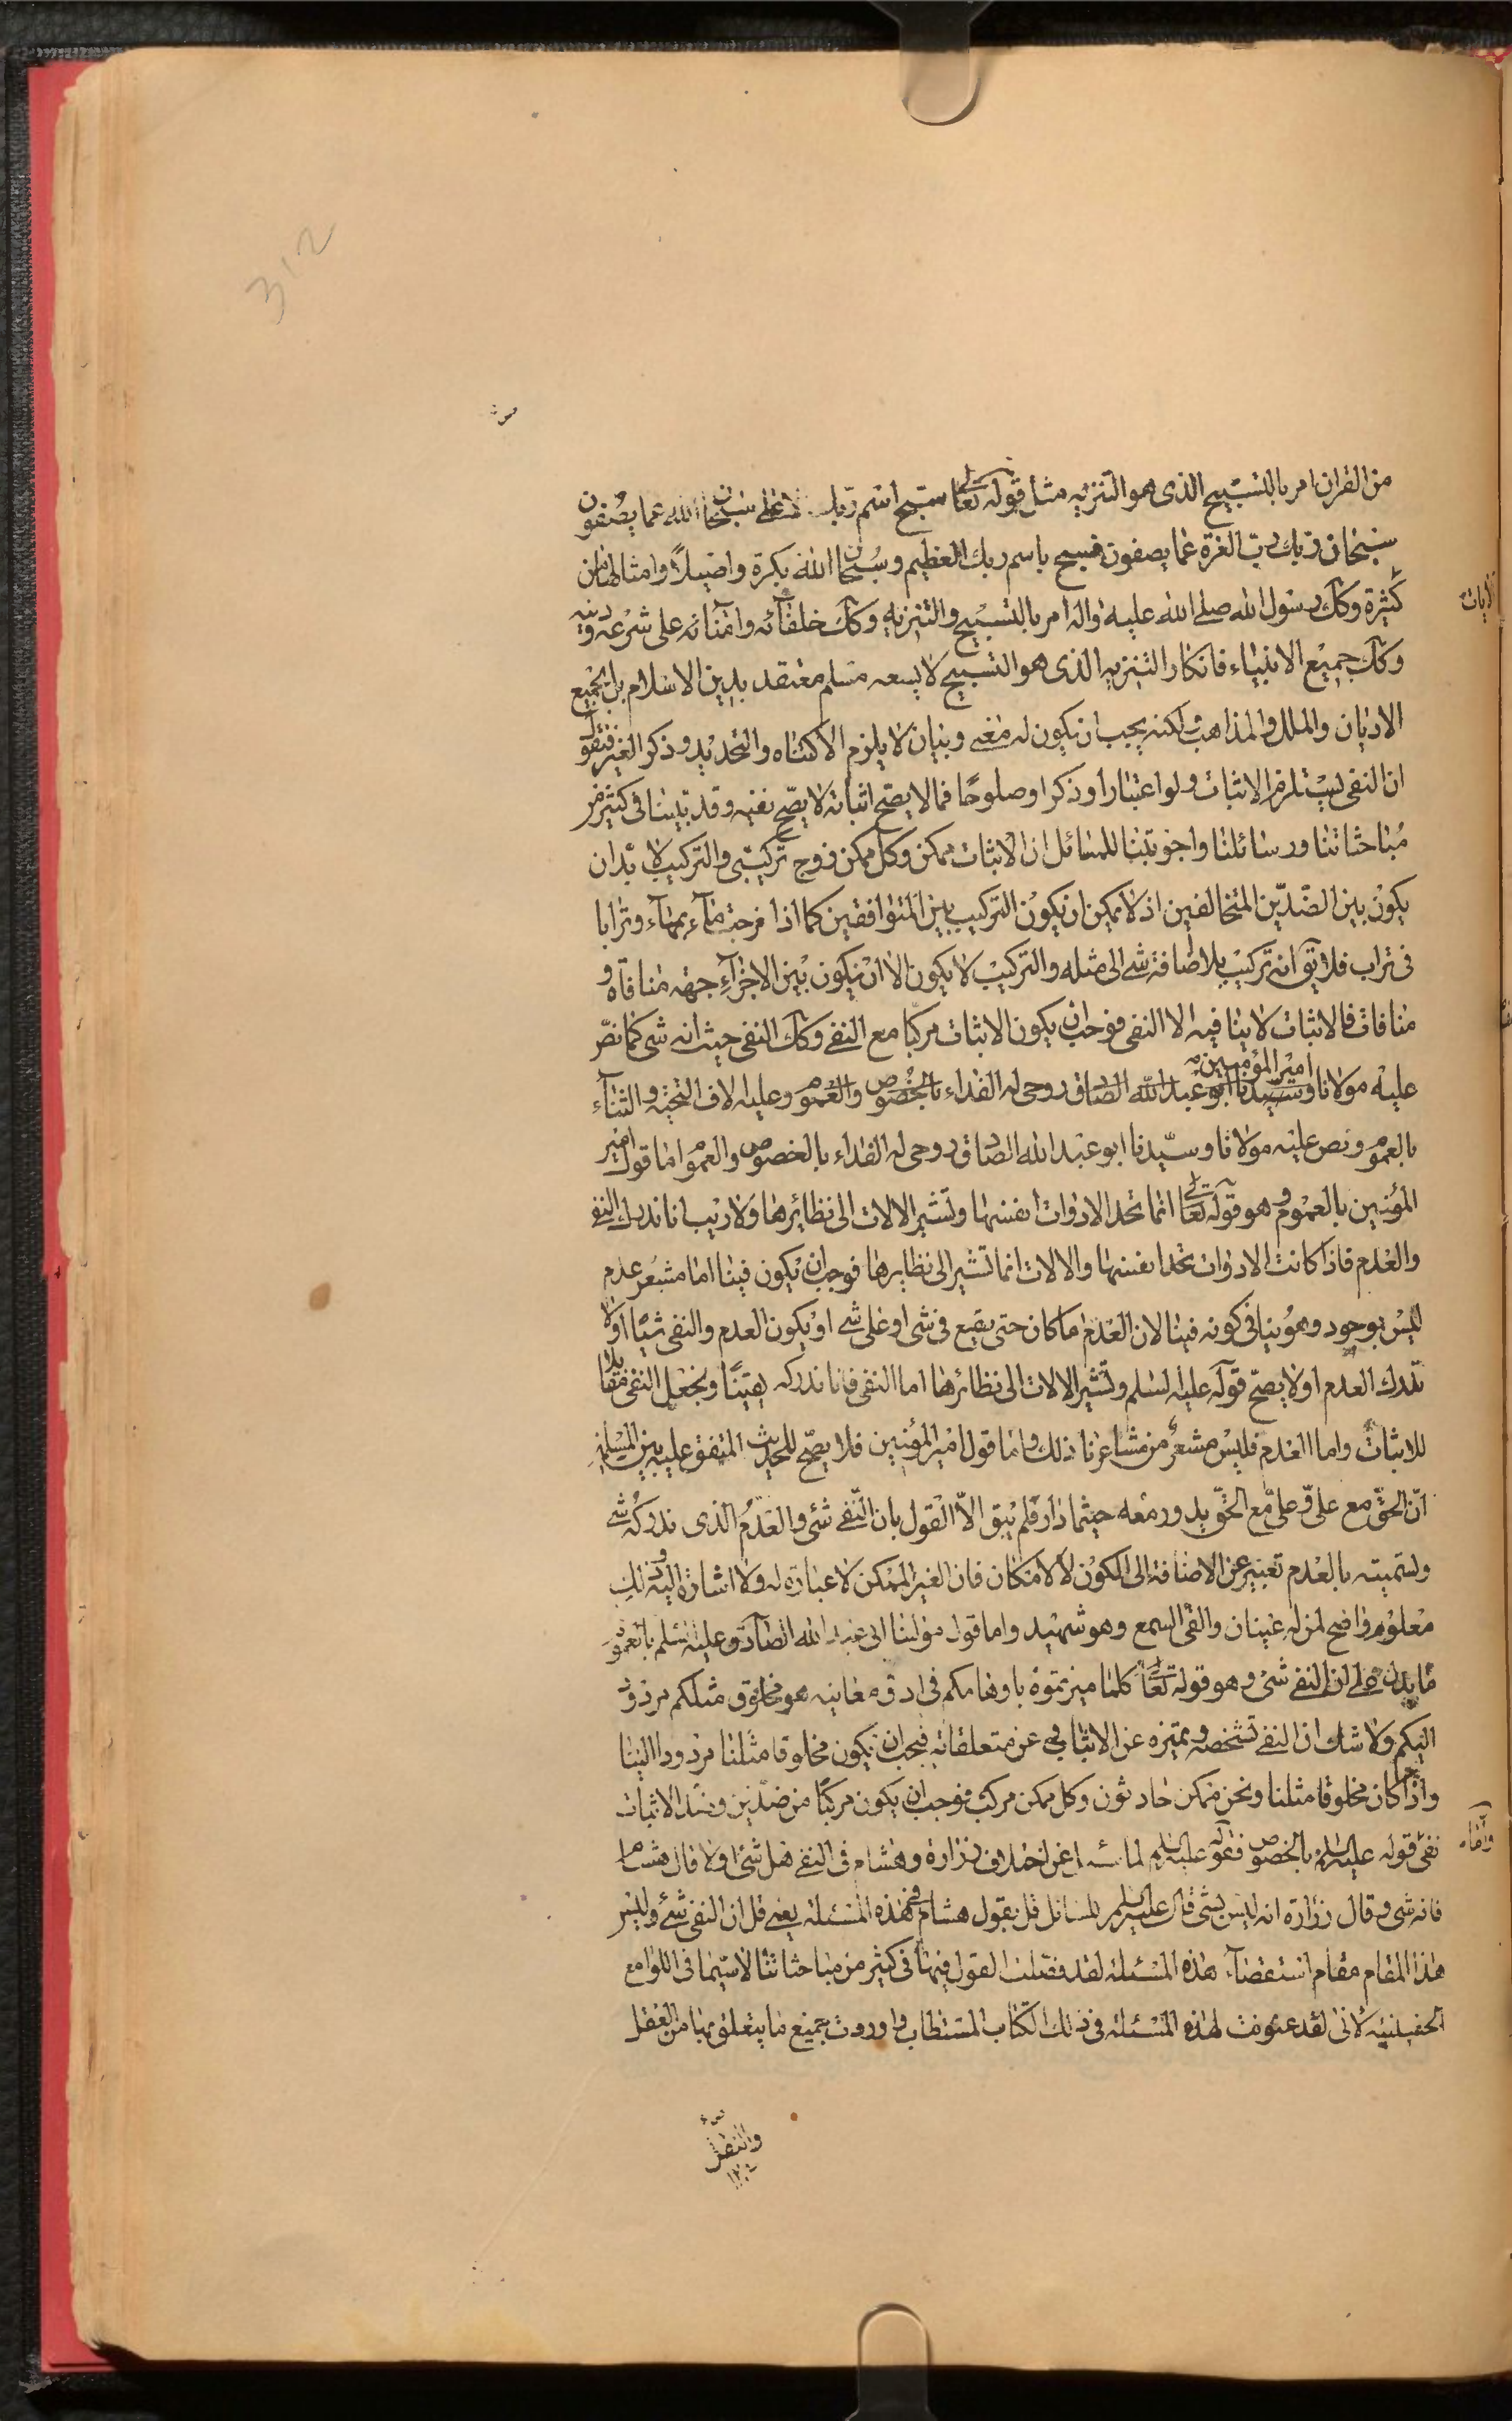 312
من القران امر بالتسبيح الذى هو التنزيه مثل قوله تعالى سبح اسم ربك الاعلى سبحان الله عما يصفون
سبحان ربك رب العزة عما يصفون فسبح باسم ربك العظيم وسبحان الله بكرة واصيلاً وامثالها من
الايات
كثيرة وكك رسول الله صلى الله عليه واله امر بالتسبيح والتنزيه وكك خلفائه وامنائه على شرعه ودينه
وكك جميع الانبياء فانكار التنزيه الذى هو التسبيح لا يسعه مسلم معتقد بدين الاسلام بل بجميع
الاديان والملل والمذاهب ولكنه يجب ان يكون له معنى وبيان لا يلزم الاكتناه والتحديد وذكر الغير فنقول
ان النفى يستلزم الاثبات ولو اعتبارا وذكرا وصلوحًا فما لا يصح اثباته لا يصح نفيه وقد بينا فى كثير من
مباحثاتنا ورسائلنا واجوبتنا للمسائل ان الاثبات ممكن وكل ممكن زوج تركيبى والتركيب لا بد ان
يكون بين الضدين المتخالفين اذ لا يمكن ان يكون التركيب بين المتوافقين كما اذا مزجت ماء بماء وترابا
فى تراب فلا يق انه تركيب بل اضافة شى الى مثله والتركيب لا يكون الا ان يكون بين الاجزاء جهة منافاة و
منافات فالاثبات لا ينافيه الا النفى فوجب ان يكون الاثبات مركبا مع النفى وكك النفى حيث انه شى كما نص
عليه مولانا وسيدنا امير المؤمنين ابو عبد الله الصادق روحى له الفداء بالخصوص والعموم وعليه الاف التحية والثناء
بالعموم ونص عليه مولانا وسيدنا ابو عبد الله الصادق روحى له الفداء بالخصوص والعموم اما قول امير
المؤمنين بالعموم وهو قوله تعالى انما تحد الادوات انفسها وتشير الالات الى نظائرها ولا ريب انا ندرك النفى
والعدم فاذا كانت الادوات تحد انفسها والالات انما تشير الى نظايرها فوجب ان يكون فينا اما مشعر عدم
ليس بوجود وهو ينافى كونه فينا لان العدم ما كان حتى يقع فى شى او على شى او يكون العدم والنفى شيئا اولا
ندرك العدم اولا يصح قوله عليه السلم وتشير الالات الى نظائرها اما النفى فانا ندركه يقينًا ونجعل النفى مقابلا
للاثبات واما العدم فليس مشعر من مشاعرنا ذلك واما قول امير المؤمنين فلا يصح للحديث المتفق عليه بين المسلمين
ان الحق مع على وعلى مع الحق يدور معه حيثما دار فلم يبق الا القول بان النفى شئ والعدم الذى ندركه شى
وتسميته بالعدم تعبير عن الاضافة الى الكون لا الامكان فان الغير الممكن لا عبارة له ولا اشارة اليه وذلك
معلوم واضح لمن له عينان والقى السمع وهو شهيد واما قول مولينا ابى عبد الله الصادق وعليه السلم بالعموم
ما يدل على ان النفى شئ وهو قوله تعالى كلما ميزتموه باوهامكم فى ادق معانيه هو مخلوق مثلكم مردود
اليكم ولا شك ان النفى تشخصه وتميزه عن الاثبات وعن متعلقاته فيجب ان يكون مخلوقا مثلنا مردودا الينا
واذا كان مخلوقا مثلنا ونحن ممكن حادثون وكل ممكن مركب فوجب ان يكون مركبًا من ضدين وضد الاثبات
واما
نفى قوله عليه السلم بالخصوص فقوله عليه السلم لما سئل عن اختلاف زرارة وهشام فى النفى هل شئ اولا قال هشام
فانه شى وقال زرارة انه ليس بشئ قال عليه السلم للسائل قل بقول هشام فى هذه المسئلة يعنى قل ان النفى شئ وليس
هذا المقام مقام استقصاء هذه المسئلة لقد فصلت القول فيها فى كثير من مباحثاتنا لاسيما فى اللوامع
الحسينية لانى لقد عنونت لهذه المسئلة فى ذلك الكتاب المستطاب واوردت جميع ما يتعلق بها من العقل
والنقل